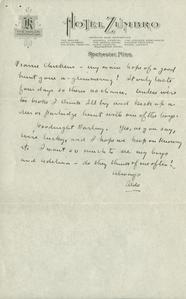 HOTEL ZUMBRO
Rochester, Minn.
Prairie Chicken - my main hope of a good
hunt gone a-glimmering! It only lasts
four days so there no chance. Unless we're
too broke I think I'll try and
deer or partridge hunt with one of the
Goodnight darling. Yes, as you say,
we're lucky, and I hope we keep on knowing
it. I want so much to see my boys
and Adelina - do they think of me often?
Always
Aldo